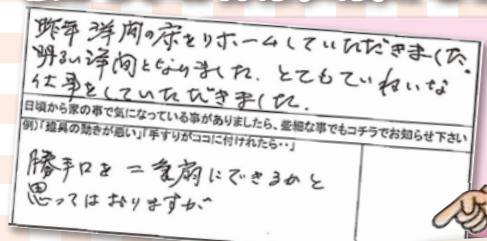 昨年 洋間の床をリホームしていただきました。
明るい洋間となりました。とてもていねいな
仕事をしていただきました。
日頃から家の事で気になっている事がありましたら、些細な事でもコチラでお知らせ下さい
例)「建具の動きが悪い」「手すりがココに付けれたら・・」
勝手口を二重扉にできるかと
思ってはおりますが